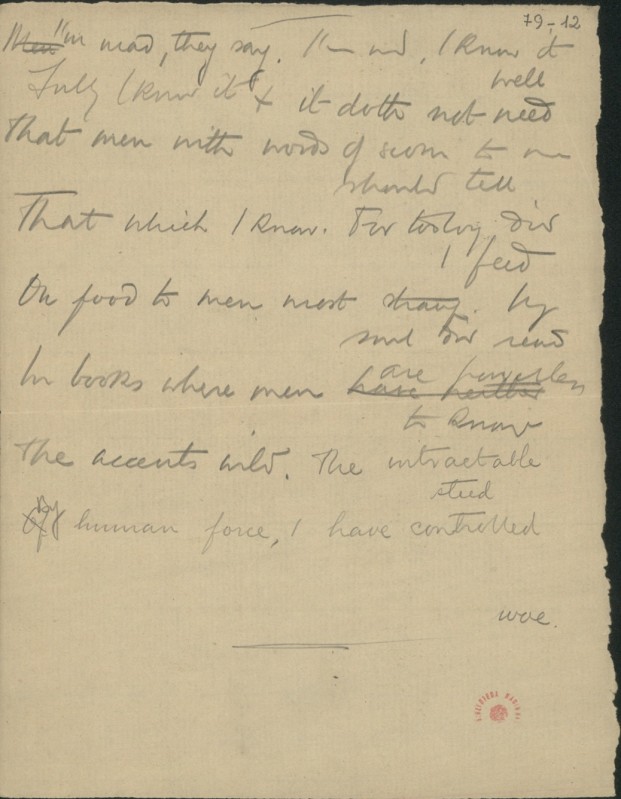 79-12
I'm mad, they say. I'm mad, I know it
well
Fully I know it & it doth not need
That men with words of scorn to me
should tell
That which I know. For today did
I feed
On food to men most strang. My
soul did read
In books where men are powerless
to know
The accents wild. The intractable
steed
Of human force, I have controlled
woe.
BIBLIOTECA NACIONAL